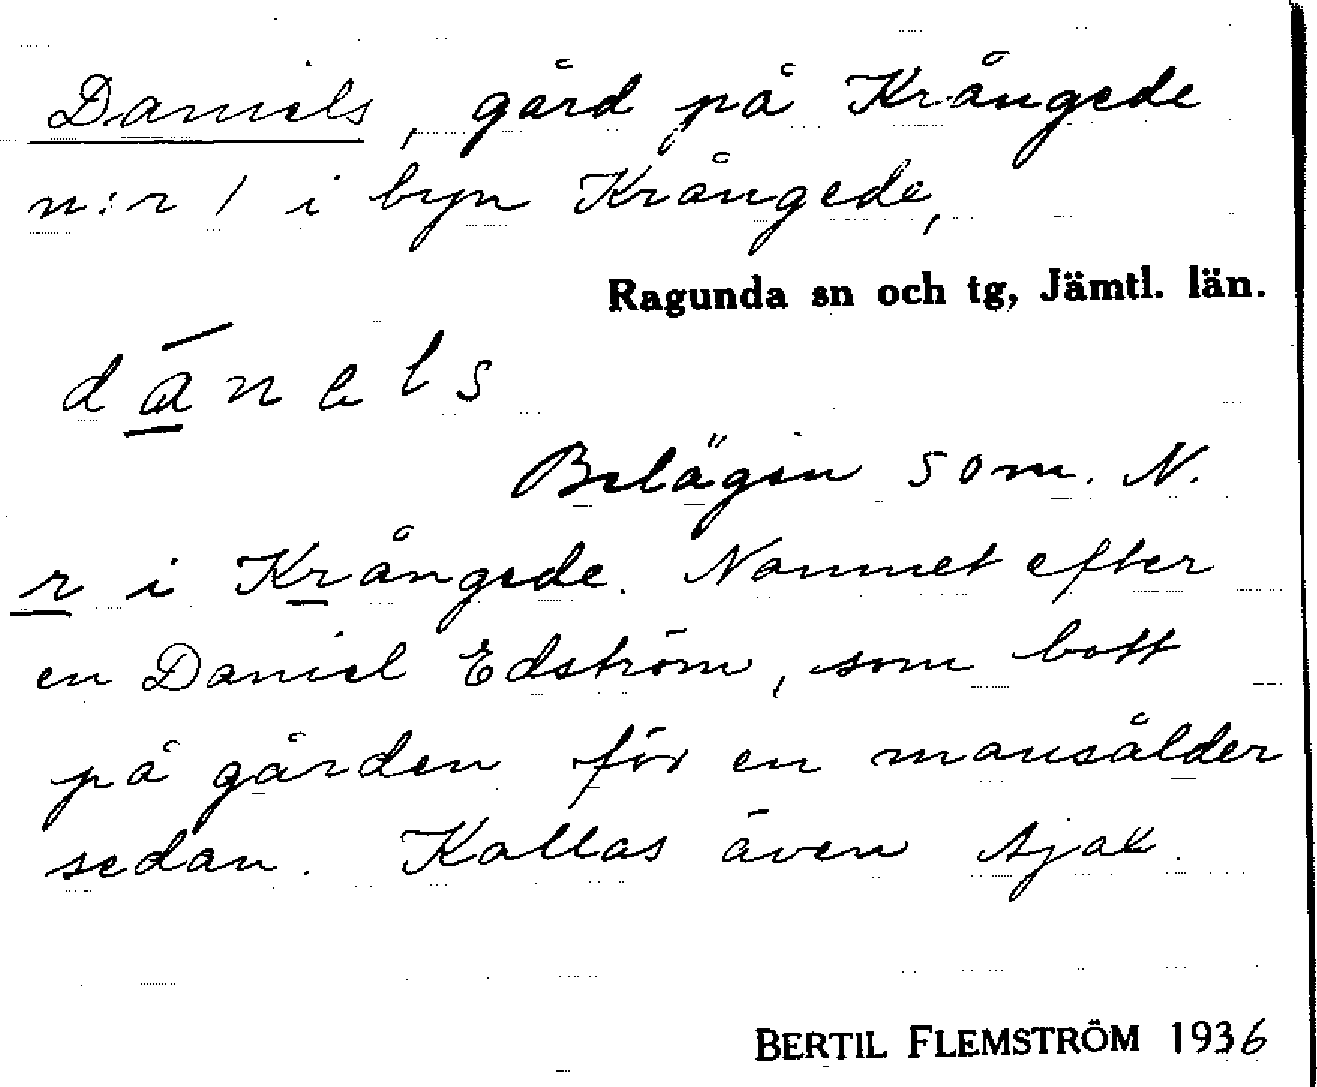 Daniels, gård på Krångede
n:r 1 i byn Krångede,
Ragunda sn och tg, Jämtl. län.
dánels
Belägen som N.
r i Krångede. Namnet efter
en Daniel Edström, som bott
på gården för en mansålder
sedan. Kallas även
BERTIL FLEMSTRÖM 1936